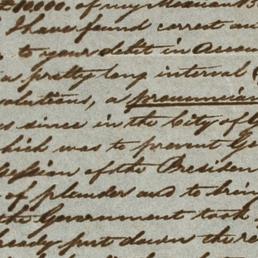 £10000. of my Mexican
I have found correct an
to your debit in accou
a pretty long interval
volutions, a pronuncia
s since in the City of
hich was to prevent Ge
session of the Presiden
of plunder and to bring
the Government took
lready put down the re